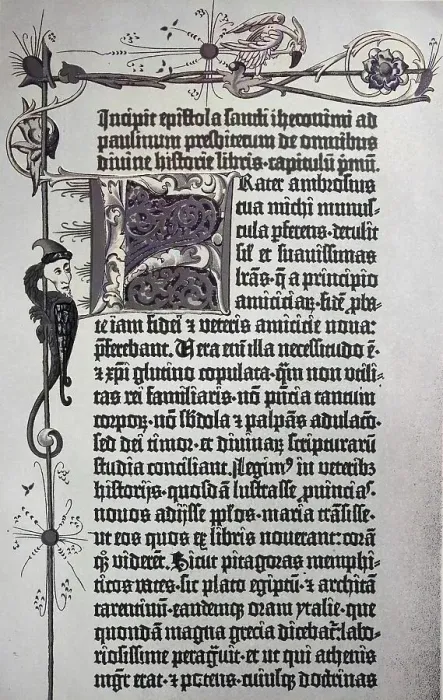 Incipit epistola sancti iheronimi ad
paulinum presbiterum de omnibus
divine historie libris·capitulū p̄mū.
Frater ambrosius
tua michi munus-
cula pferens·detulit
sił et suavissimas
lrās·q̄ a principio
amiciciaꝝ·fidē pba-
te iam fidei ⁊ veteris amicicie nova:
p̄ferebant. Vera eni illa necessitudo ē·
⁊ xp̄i glutino copulata·q̄m non utili-
tas rei familiaris·nō p̄ncia tantum
corpoꝝ·nō sb̄dola ⁊ palpās adulaco·
sed dei timor·et divinaꝝ scripturarū
studia conciliant. Legimꝰ in veteribꝫ
historijs·quosdā lustrasse p̄vincias·
novos adijsse pp̄los·maria trāsisse·
ut eos quos ex libris noverant: corā
qꝫ viderēt. Sicut pitagoras memphi-
ticos vates·sic plato egiptū·⁊ architā
tarentinū·eandemqꝫ oram ytalie·que
quondā magna grecia dicebat̄: labo-
riosissime peragᷓvit·et ut qui athenis
mgr̄ erat·⁊ potens·cuiusqꝫ doctrinas